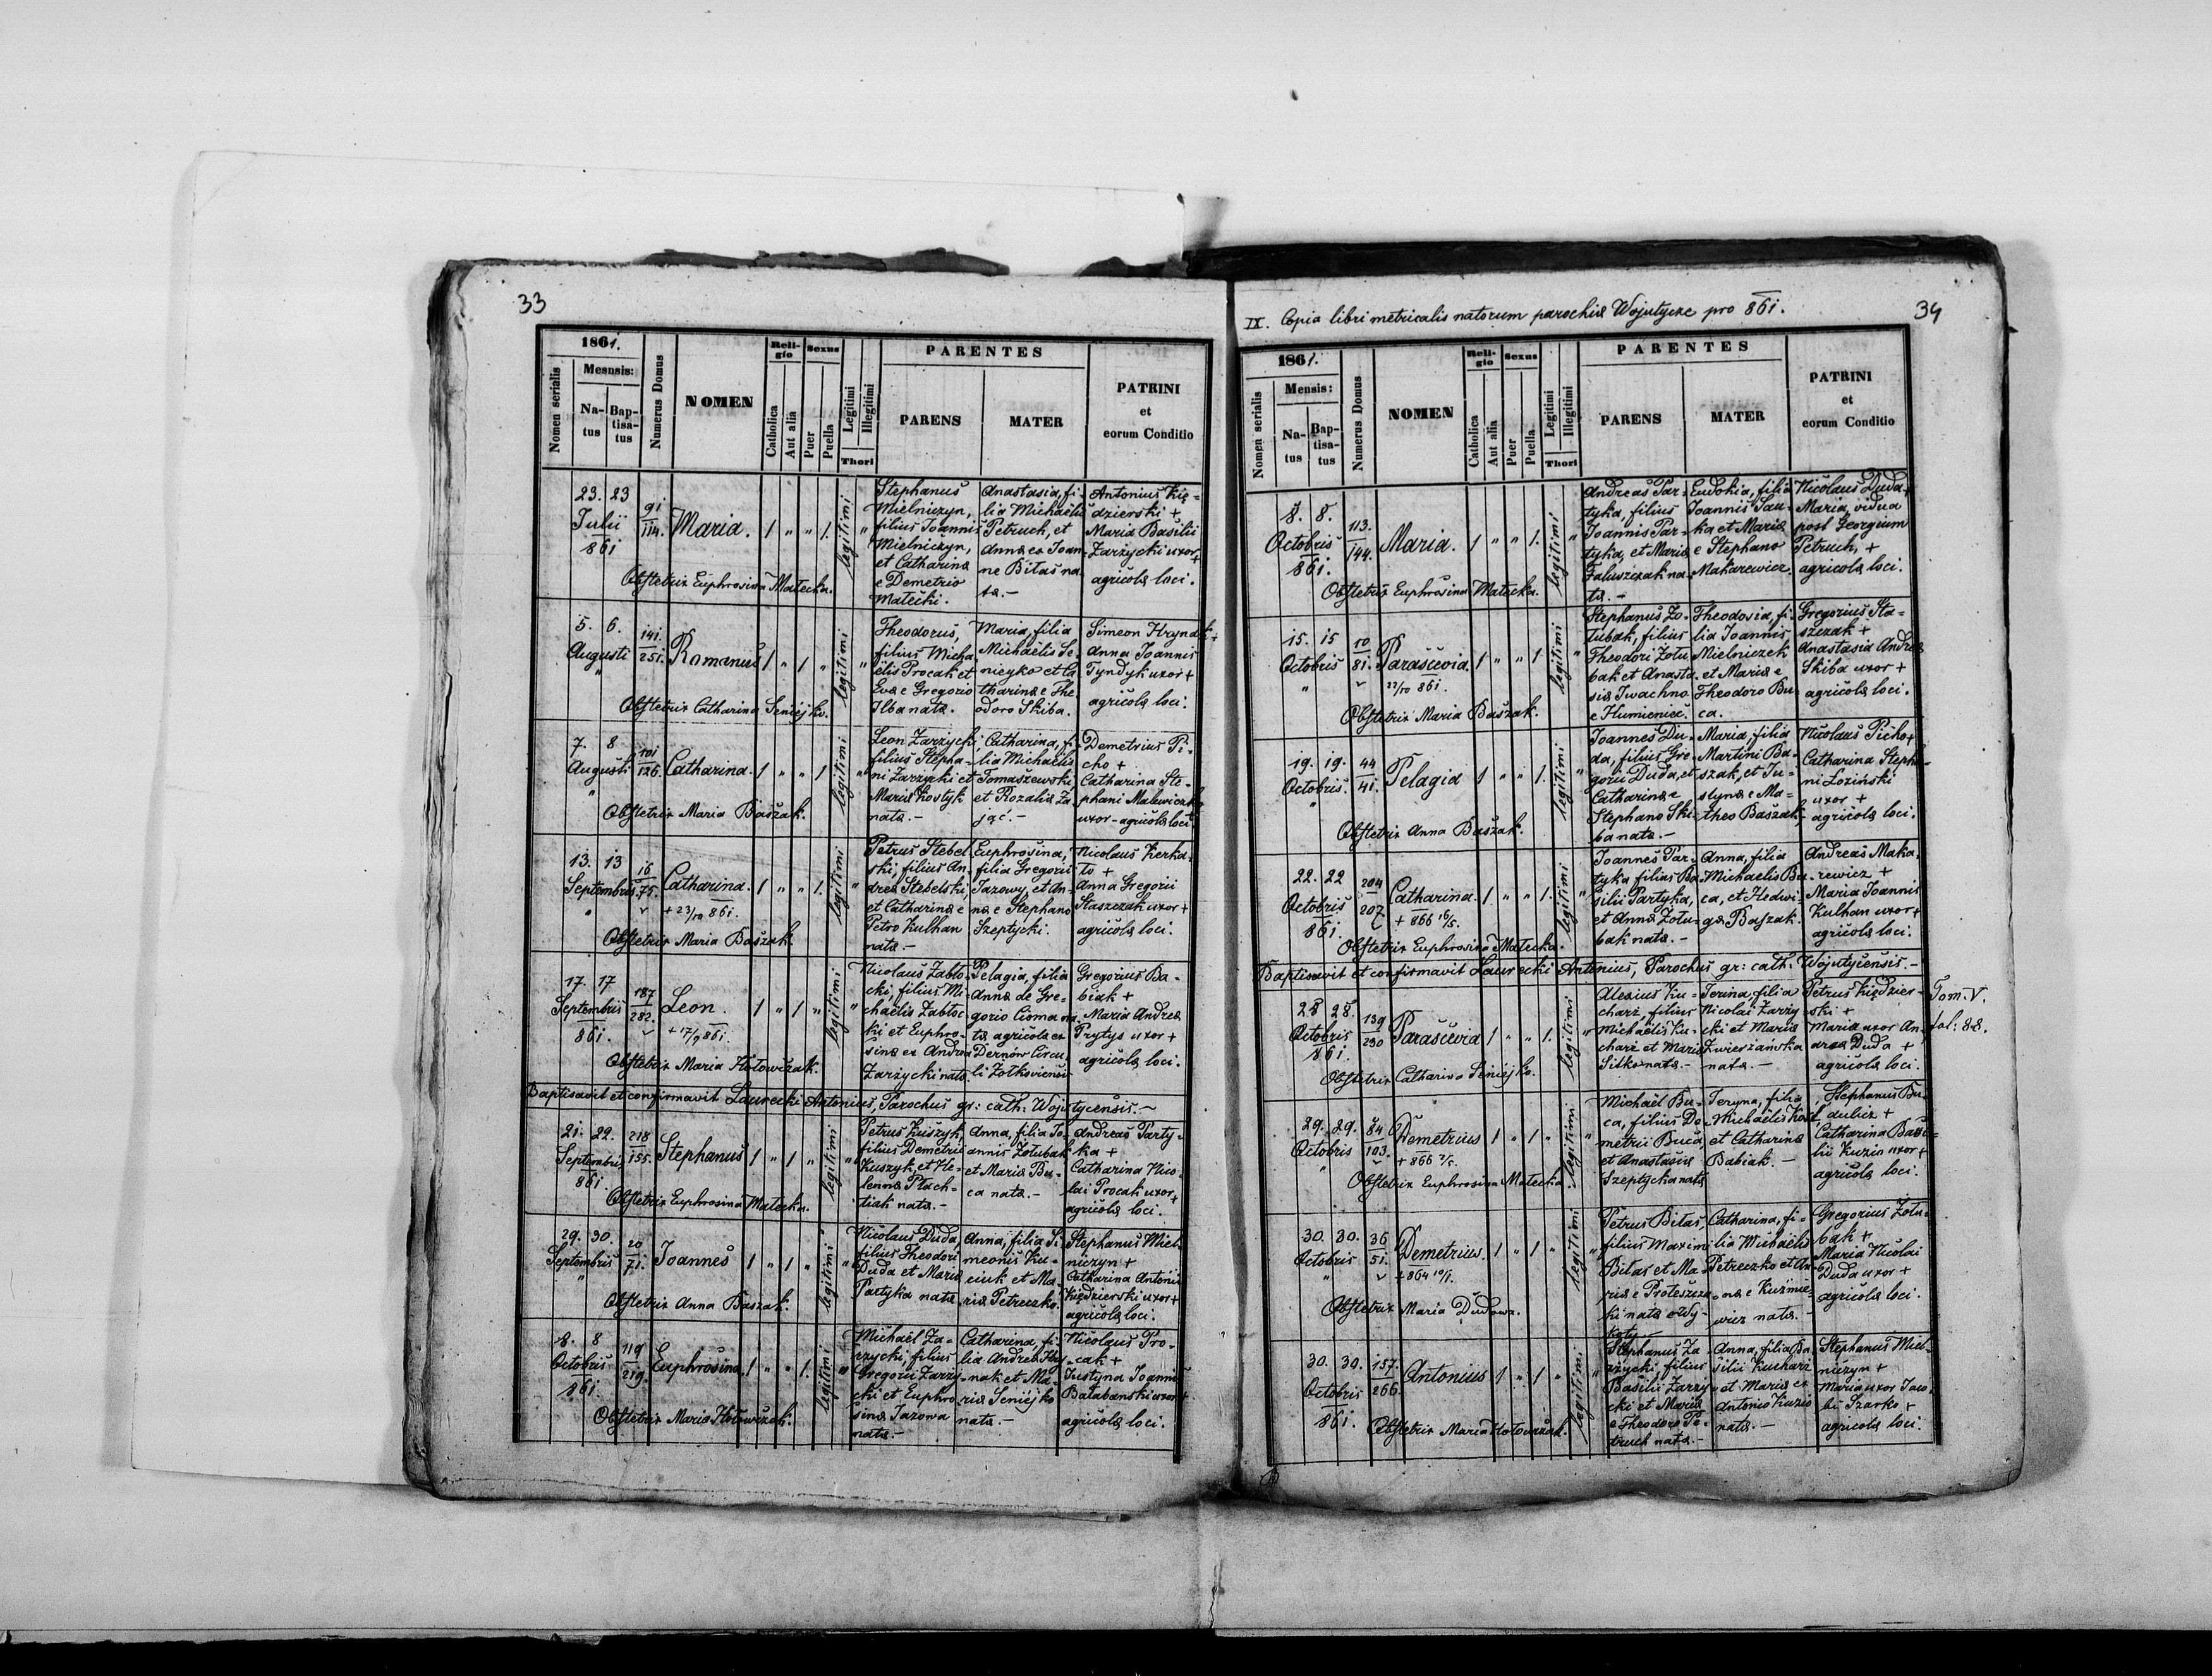 33
1861.
Mesnsis:
Nomen serialis
Natus
Baptisatus
Numerus Domus
NOMEN
Religio
Catholica
Aut alia
Sexus
Puer
Puella
Legitimi
Illegitimi
Thori
PARENTES
PARENS
MATER
PATRINI
et
eorum Conditio
23. 23
Julii
861
91
114.
Maria.
1 " " 1.
legitimi
"
Stephanus
Mielniczyn,
filius Joannis
Mielniczyn,
et Catharina
e Demetrio
Małecki.
Anastasia, fi-
lia Michaelis
Petruch, et
Anna ex Joan-
ne Bitas na
ta.-
Antonius Kię-
dzierski +
Maria Basilii
Zarzycki uxor +
agricola loci.
Obstetrix Euphrosina Małecka.
5. 6.
Augusti
"
141.
251.
Romanus
1 " 1 "
legitimi
Theodorus,
filius Micha
elis Procak et
Eva e Gregorio
Ilba nata.
Maria, filia
Michaelis Se-
nieyko et Ca
tharina e The
odoro Skiba.
Simeon Hrynda +
Anna Joannis
Tyndyk uxor +
agricola loci.
Obstetrix Catharina Seniejko.
7. 8
Augusti
"
101
126.
Catharina.
1 " " 1
legitimi
"
Leon Zarzycki
filius Stepha-
ni Zarzycki et
Maria Kostyk
nata.-
Catharina, fi-
lia Michaelis
Tomaszewski
et Rozalia Za-
jąc.-
Demetrius Pi-
cho +
Catharina Ste-
phani Malewiczka
uxor - agricola loci.
Obstetrix Maria Baszak.
13. 13
Septembris
"
16
75.
Catharina.
+ 23/10 861.
1 " " 1.
legitimi
"
Petrus Stebel
ski, filius An-
drea Stebelski,
et Catharina e
Petro Kulhan
nata.-
Euphrosina,
filia Gregorii
Jazowy, et An-
na e Stephano
Szeptycki.
Nicolaus Kerka-
to +
Anna Gregorii
Staszczak uxor +
agricola loci.
Obstetrix Maria Baszak.
17. 17
Septembris
861.
187
282.
Leon.
+ 17/9 861.
1 " 1 "
legitimi
"
Nicolaus Zabło-
cki, filius Mi-
chaelis Zabłoc-
ki et Euphro-
sina ex Andrea
Zarzycki nata.
Pelagia, filia
Anna de Gre-
gorio Cioma na
ta agricola ex
Dernów Circu
li Żołkoviensis
Gregorius Ba-
biak +
Maria Andrea
Prytys uxor +
agricola loci.
Obstetrix Maria Hołowczak.
Baptisavit et confirmavit Laurecki Antonius, Parochus gr: cath: Wojutycensis.-
21. 22.
Septembris
861
218
155.
Stephanus
1 " 1 "
legitimi
"
Petrus Kuszyk,
filius Demetrii
Kuszyk, et He-
lenna Płach-
tiak nata.-
Anna, filia Jo-
annis Zołubak
et Maria Bu-
ca nata.-
Andreas Party-
ka +
Catharina Nico
lai Procak uxor +
agricola loci.
Obstetrix Euphrosina Małecka.
29. 30.
Septembris
"
20
71.
Joannes
1 " 1 "
legitimi
"
Nicolaus Duda,
filius Theodori
Duda et Maria
Partyka nata.
Anna, filia Si
meonis Ku-
ciuk et Ma-
ria Petreczko.
Stephanus Miel-
niczyn +
Catharina Antonii
Kiędzierski uxor +
agricola loci.
Obstetrix Anna Baszak.
8. 8
Octobris
861
119
219.
Euphrosina
1 " " 1.
legitimi
"
Michael Za-
rzycki, filius
Gregorii Zarzy-
cki et Euphro
sina Jazowa
nata.-
Catharina, fi-
lia Andrea Hry-
nak et Ma-
ria Seniejko
nata.-
Nicolaus Pro-
cak +
Justyna Joannis
Bałabanski uxor +
agricola loci.
Obstetrix Maria Hołowczak.
IX. Copia libri metricalis natorum parochia Wojutycze pro 861.
34
1861.
Mensis:
Nomen serialis
Natus
Baptisatus
Numerus Domus
NOMEN
Religio
Catholica
Aut alia
Sexus
Puer
Puella
Legitimi
Illegitimi
Thori
PARENTES
PARENS
MATER
PATRINI
et
eorum Conditio
8. 8.
Octobris
861.
113.
144.
Maria.
1 " " 1.
legitimi
"
Andreas Par-
tyka, filius
Joannis Par-
tyka, et Maria
Faluszczak na-
ta.-
Eudokia, filia
Joannis Sau-
ka et Maria
e Stephano
Makarewicz.
Nicolaus Duda +
Maria, vidua
post Georgium
Petruch, +
agricola loci.
Obstetrix Euphrosina Małecka.
15. 15
Octobris
"
10
81.
Parascevia.
22/10 861.
1 " " 1
legitimi
"
Stephanus Zo-
łubak, filius
Theodori Zołu
bak et Anasta
sia Iwachno
e Humieniec.
Theodosia, fi-
lia Joannis
Mielniczek
et Maria e
Theodoro Bu-
ca.
Gregorius Sta-
szczak +
Anastasia Andrea
Skiba uxor +
agricola loci.
Obstetrix Maria Baszak.
19. 19.
Octobris.
"
44
41.
Pelagia
1 " " 1
legitimi
"
Joannes Du-
da, filius Gre-
gorii Duda, et
Catharina e
Stephano Ski-
ba nata.-
Maria, filia
Martini Ba-
szak, et Ju-
styna e Ma-
theo Baszak,
Nicolaus Picho +
Catharina Stepha-
ni Łoziński
uxor +
agricola loci.
Obstetrix Anna Baszak.
22. 22
Octobris
861.
204
207
Catharina.
+ 866 16/5.
1 " " 1.
legitimi
"
Joannes Par-
tyka filius Ba
silii Partyka,
et Anna Zołu-
bak nata.-
Anna, filia
Michaelis Bu-
ca, et Hedwi-
ga Baszak.
Andreas Maka-
rewicz +
Maria Joannis
Kulhan uxor +
agricola loci.
Obstetrix Euphrosina Małecka.
Baptisavit et confirmavit Laurecki Antonius, Parochus gr: cath: Wojutycensis.-
28 28.
Octobris
861.
139
230
Parascevia
1 " " 1.
legitimi
"
Alexius Ku-
charz, filius
Michaelis Ku-
charz et Maria
Sitko nata.-
Ierina, filia
Nicolai Zarzy
cki et Maria
Zwierzańska
nata.-
Petrus Kiędzier-
ski +
Maria uxor An-
drea Duda +
agricola loci.
Tom: V.
fol: 88.
Obstetrix Catharina Seniejko.
29. 29.
Octobris
"
84
103.
Demetrius
+ 866 2/5.
1 " 1 "
legitimi
"
Michael Bu-
ca, filius De-
metrii Buca,
et Anastasia
Szeptycka nata
Teryna, filia
Michaelis
et Catharina
Babiak.-
Stephanus Bu-
dulicz +
Catharina Basi-
lii Kuzio uxor +
agricola loci.
Obstetrix Euphrosina Małecka
30. 30.
Octobris
"
36
51.
Demetrius.
+ 864 10/1.
1 " 1 "
legitimi
"
Petrus Bitas,
filius Maxim
Bitas et Ma-
ria e Proteszcza
ki nata e Wy-
koty-
Catharina, fi-
lia Michaelis
Petreczko et An-
na e Kuźmie-
wicz nata.-
Gregorius Zołu-
bak +
Maria Nicolai
Duda uxor +
agricola loci.
Obstetrix Maria Dudowa.
30. 30.
Octobris
861.
157.
266.
Antonius
1 " 1 "
legitimi
"
Stephanus Za-
rzycki filius
Basilii Zarzy-
cki et Maria
e Theodoro Pe-
truch nata.-
Anna, filia Ba-
silii Kucharz
et Maria ex
Antonio Kuzio
nata.-
Stephanus Miel-
niczyn +
Maria uxor Jaco
bi Szarko +
agricola loci.
Obstetrix Maria Hołowczak.